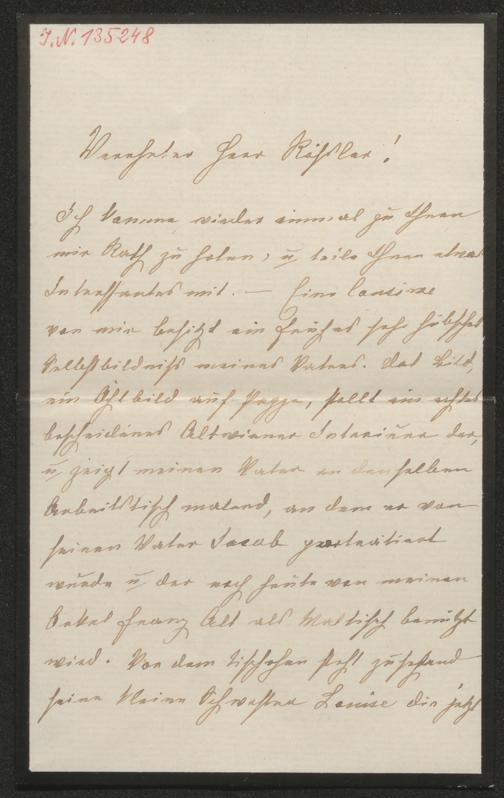 J. N. 135248
Verehrter Herr Rößler!
Ich komme wieder einmal zu Ihnen
mir Rath zu holen, u teile Ihnen etwas
Interessantes mit. — Eine Cousine
von mir besitzt ein frühes sehr hübsches
Selbstbildniß meines Vaters. Das Bild,
ein Öhlbild auf Pappe, stellt ein echtes
bescheidenes Altwiener Interieur dar,
u zeigt meinen Vater an demselben
Arbeitstisch malend, an dem er von
seinem Vater Jacob porträtiert
wurde u der noch heute von meinem
Onkel Franz Alt als Maltisch benützt
wird. Vor dem Tischchen steht zusehend
seine kleine Schwester Louise die jetzt